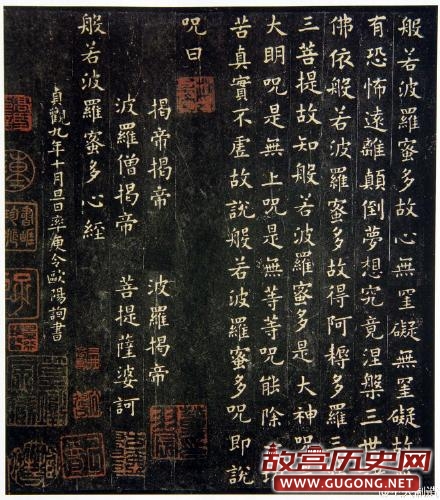 般若波羅蜜多故心無罣礙無罣礙故
有恐怖遠離顛倒夢想究竟涅槃三世
佛依般若波羅蜜多故得阿耨多羅三
三菩提故知般若波羅蜜多是大神咒
大明咒是無上咒是無等等咒能除
苦真實不虛故說般若波羅蜜多咒即說
咒曰
揭帝揭帝 波羅揭帝
波羅僧揭帝 菩提薩婆訶
般若波羅蜜多心經
貞觀九年十月旦日率更令歐陽詢書
故宫历史网
WWW.GUGONG.NET